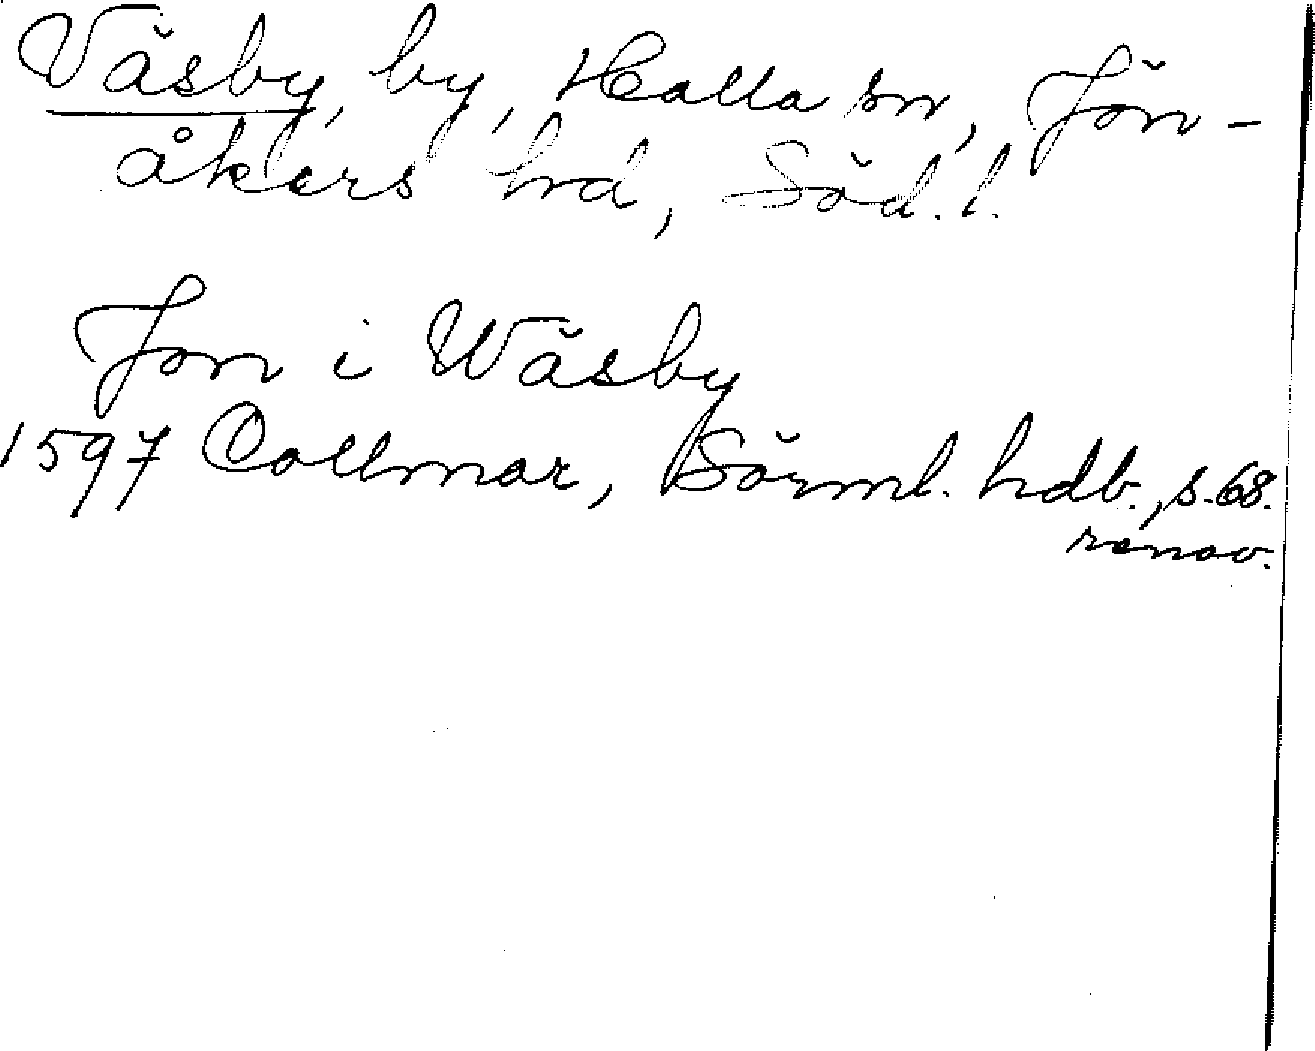 Väsby, by, Halla sn, Jön-
åkers hd, Söd. l.
Jon i Wäsby
1597 Collmar, Sörml. hdb., s. 68.
renov.